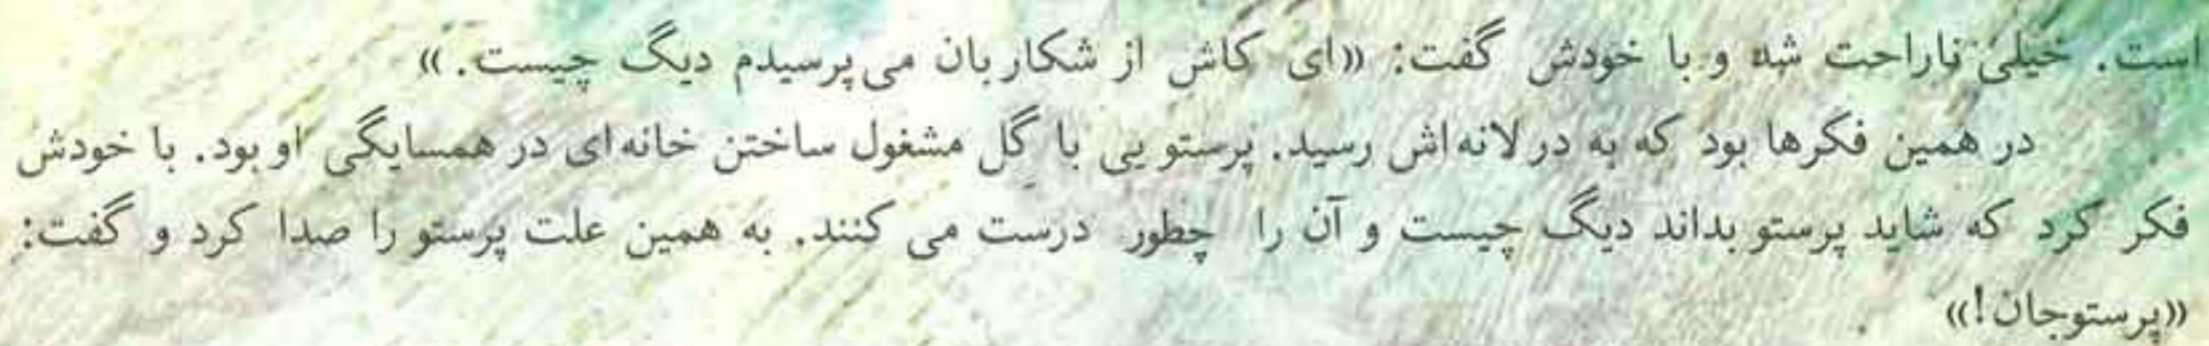 است. خیلی ناراحت شد و با خودش گفت: «ای کاش از شکاربان می‌پرسیدم دیگ چیست.»
در همین فکرها بود که به در لانه‌اش رسید. پرستویی با گل مشغول ساختن خانه‌ای در همسایگی او بود. با خودش
فکر کرد که شاید پرستو بداند دیگ چیست و آن را چطور درست می‌کنند. به همین علت پرستو را صدا کرد و گفت:
«پرستوجان!»